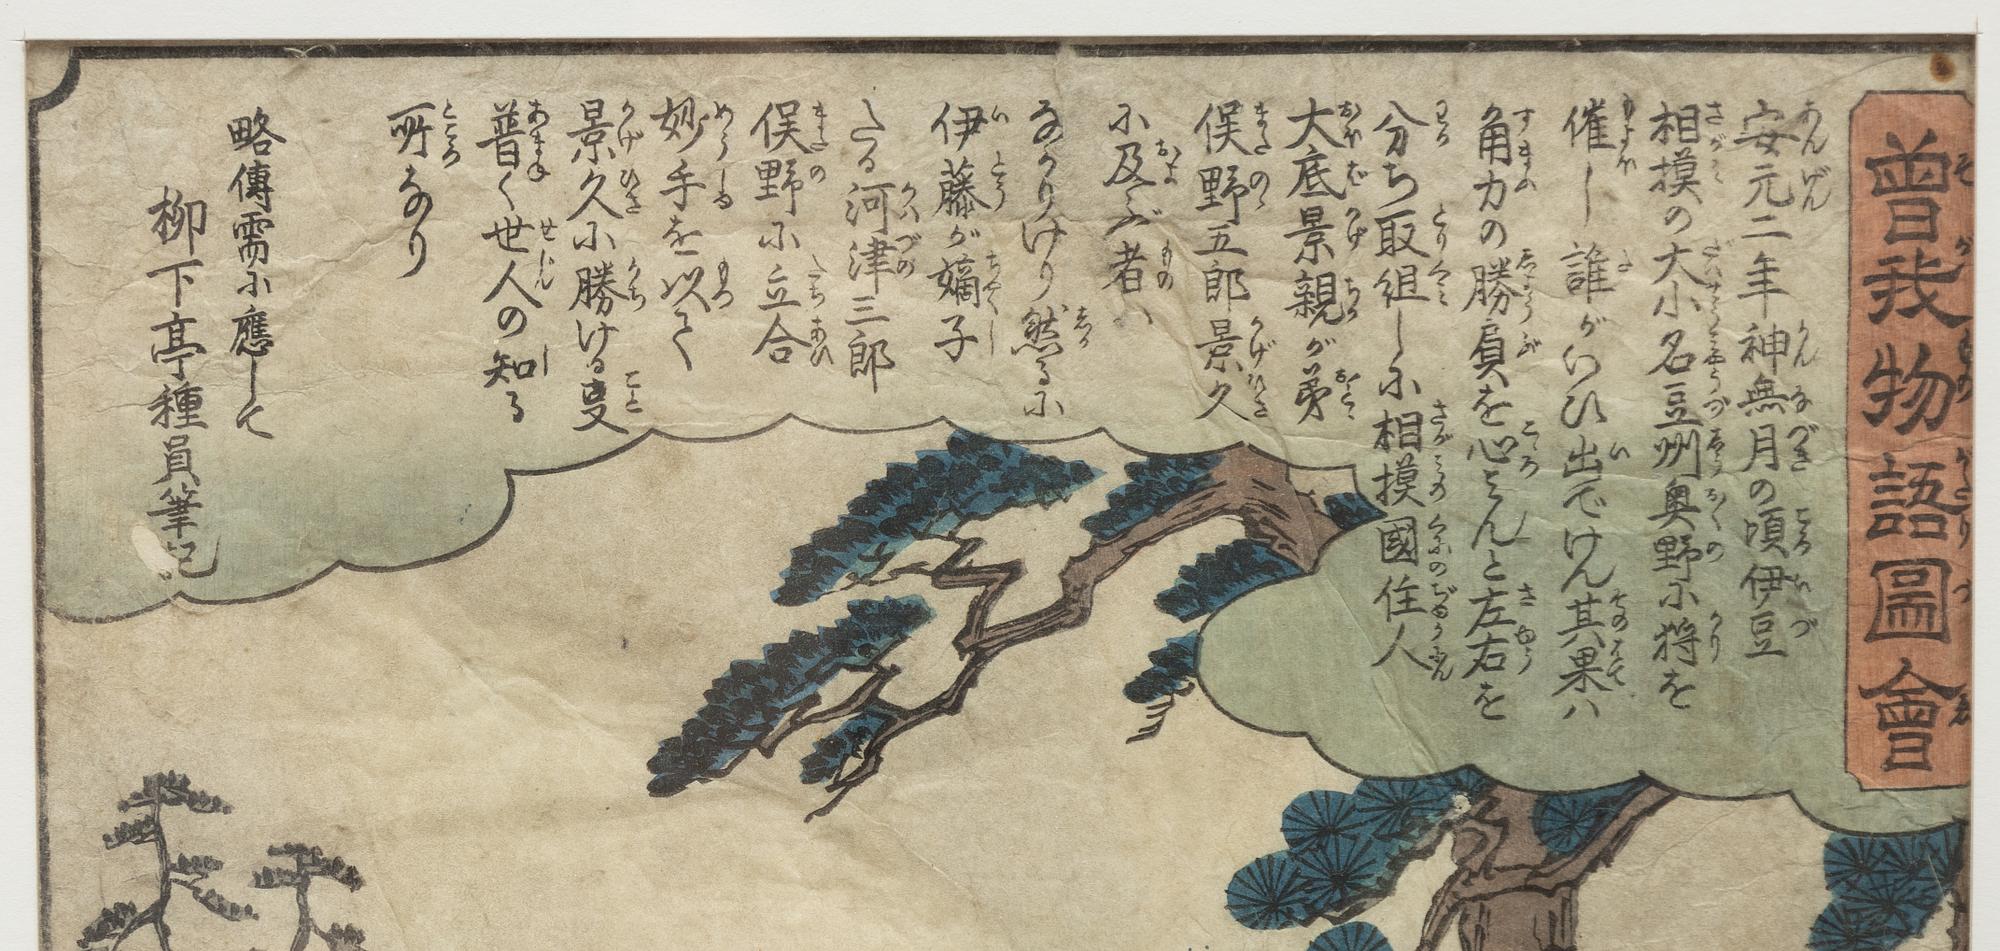 曽我物語圖會
安元二年神無月の頃伊豆
相摸の大小名豆州奥野小狩を
催し誰がいひ出でけん其果ハ
角力の勝負を心みんと左右を
分ち取組しに相摸國住人
大庭景親が弟
俣野五郎景久
小及ぶ者ハ
なかりけり然るに
伊藤が嫡子
たる河津三郎
俣野小立合
妙手を以て
景久小勝ける叓
普く世人の知る
所なり
略傳需小應して
柳下亭種員筆記